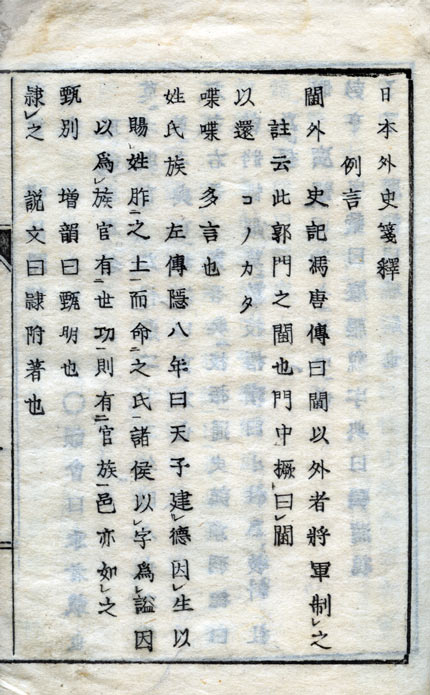 日本外史箋釋
例言
閫外 史記馮唐傳曰閫以外者將軍制㆑之
註云此郭門之閫也門中橛曰㆑閫
以還 コノカタ
喋喋 多言也
姓氏族 左傳隱八年曰天子建㆑德因㆑生以
賜㆑姓胙㆓之土㆒而命㆓之氏㆒諸侯以㆑字爲㆑謚因
以爲㆑族官有㆓世功㆒則有㆓官族㆒邑亦如㆑之
甄別 增韻曰甄明也
隷㆑之 說文曰隷附著也